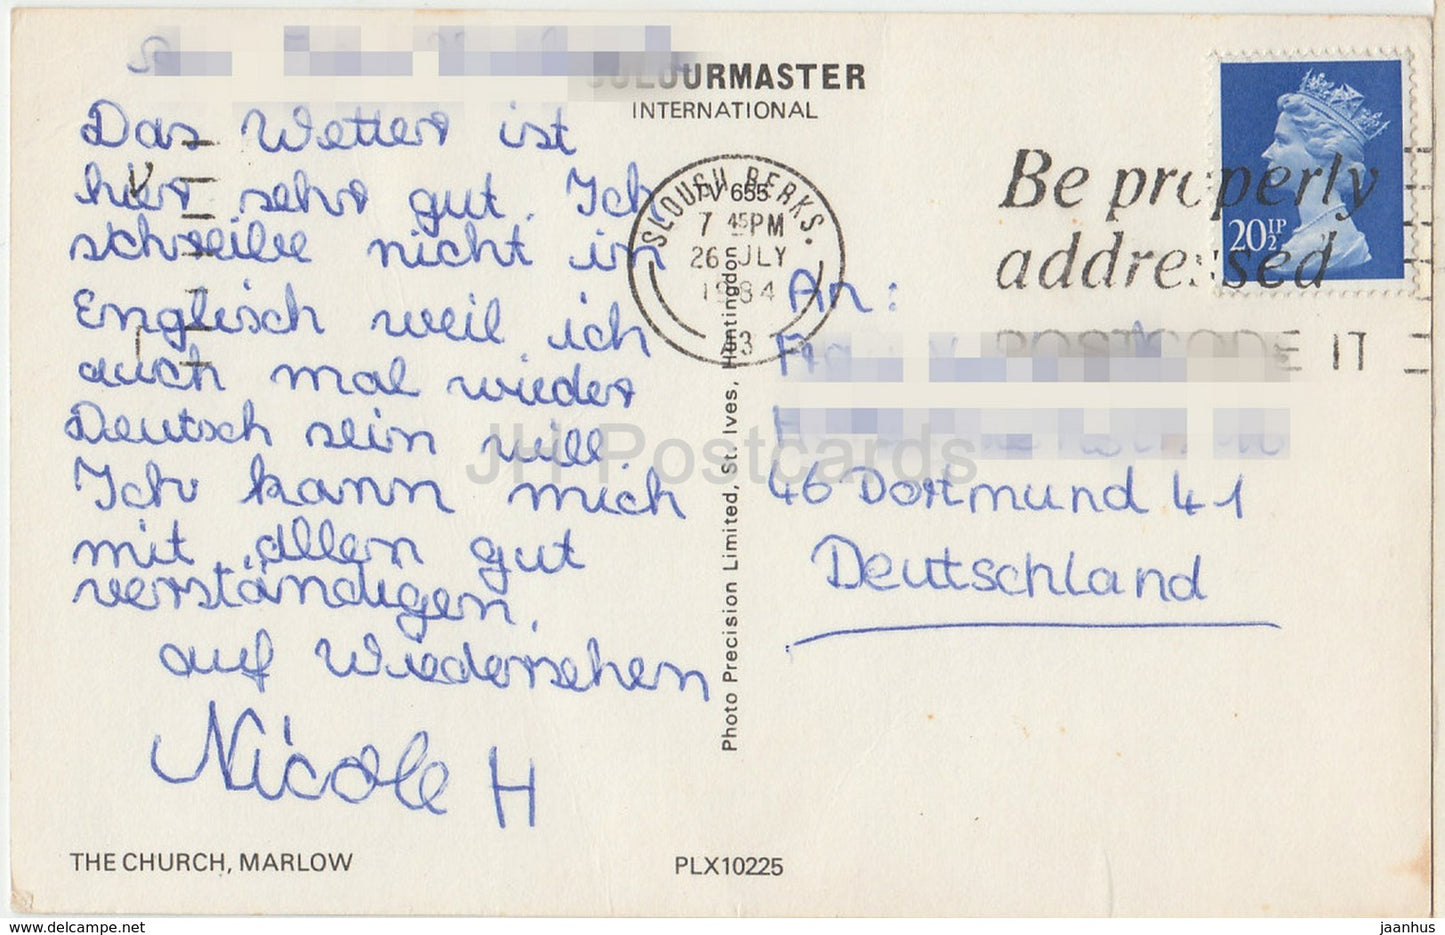 COLOURMASTER
INTERNATIONAL
Das Wetter ist
hier sehr gut. Ich
schreibe nicht in
Englisch weil ich
auch mal wieder
Deutsch sein will.
Ich kann mich
mit allen gut
verständigen.
auf Wiedersehen
Nicole H
THE CHURCH, MARLOW
PLX10225
Photo Precision Limited, St. Ives, Huntingdon
PV 655
SLOUGH BERKS.
7 45PM
26 JLY
1984
3
Be properly
addressed
POSTCODE IT
20½P
An:
46 Dortmund 41
Deutschland
JH Postcards
www.delcampe.net
jaanhus